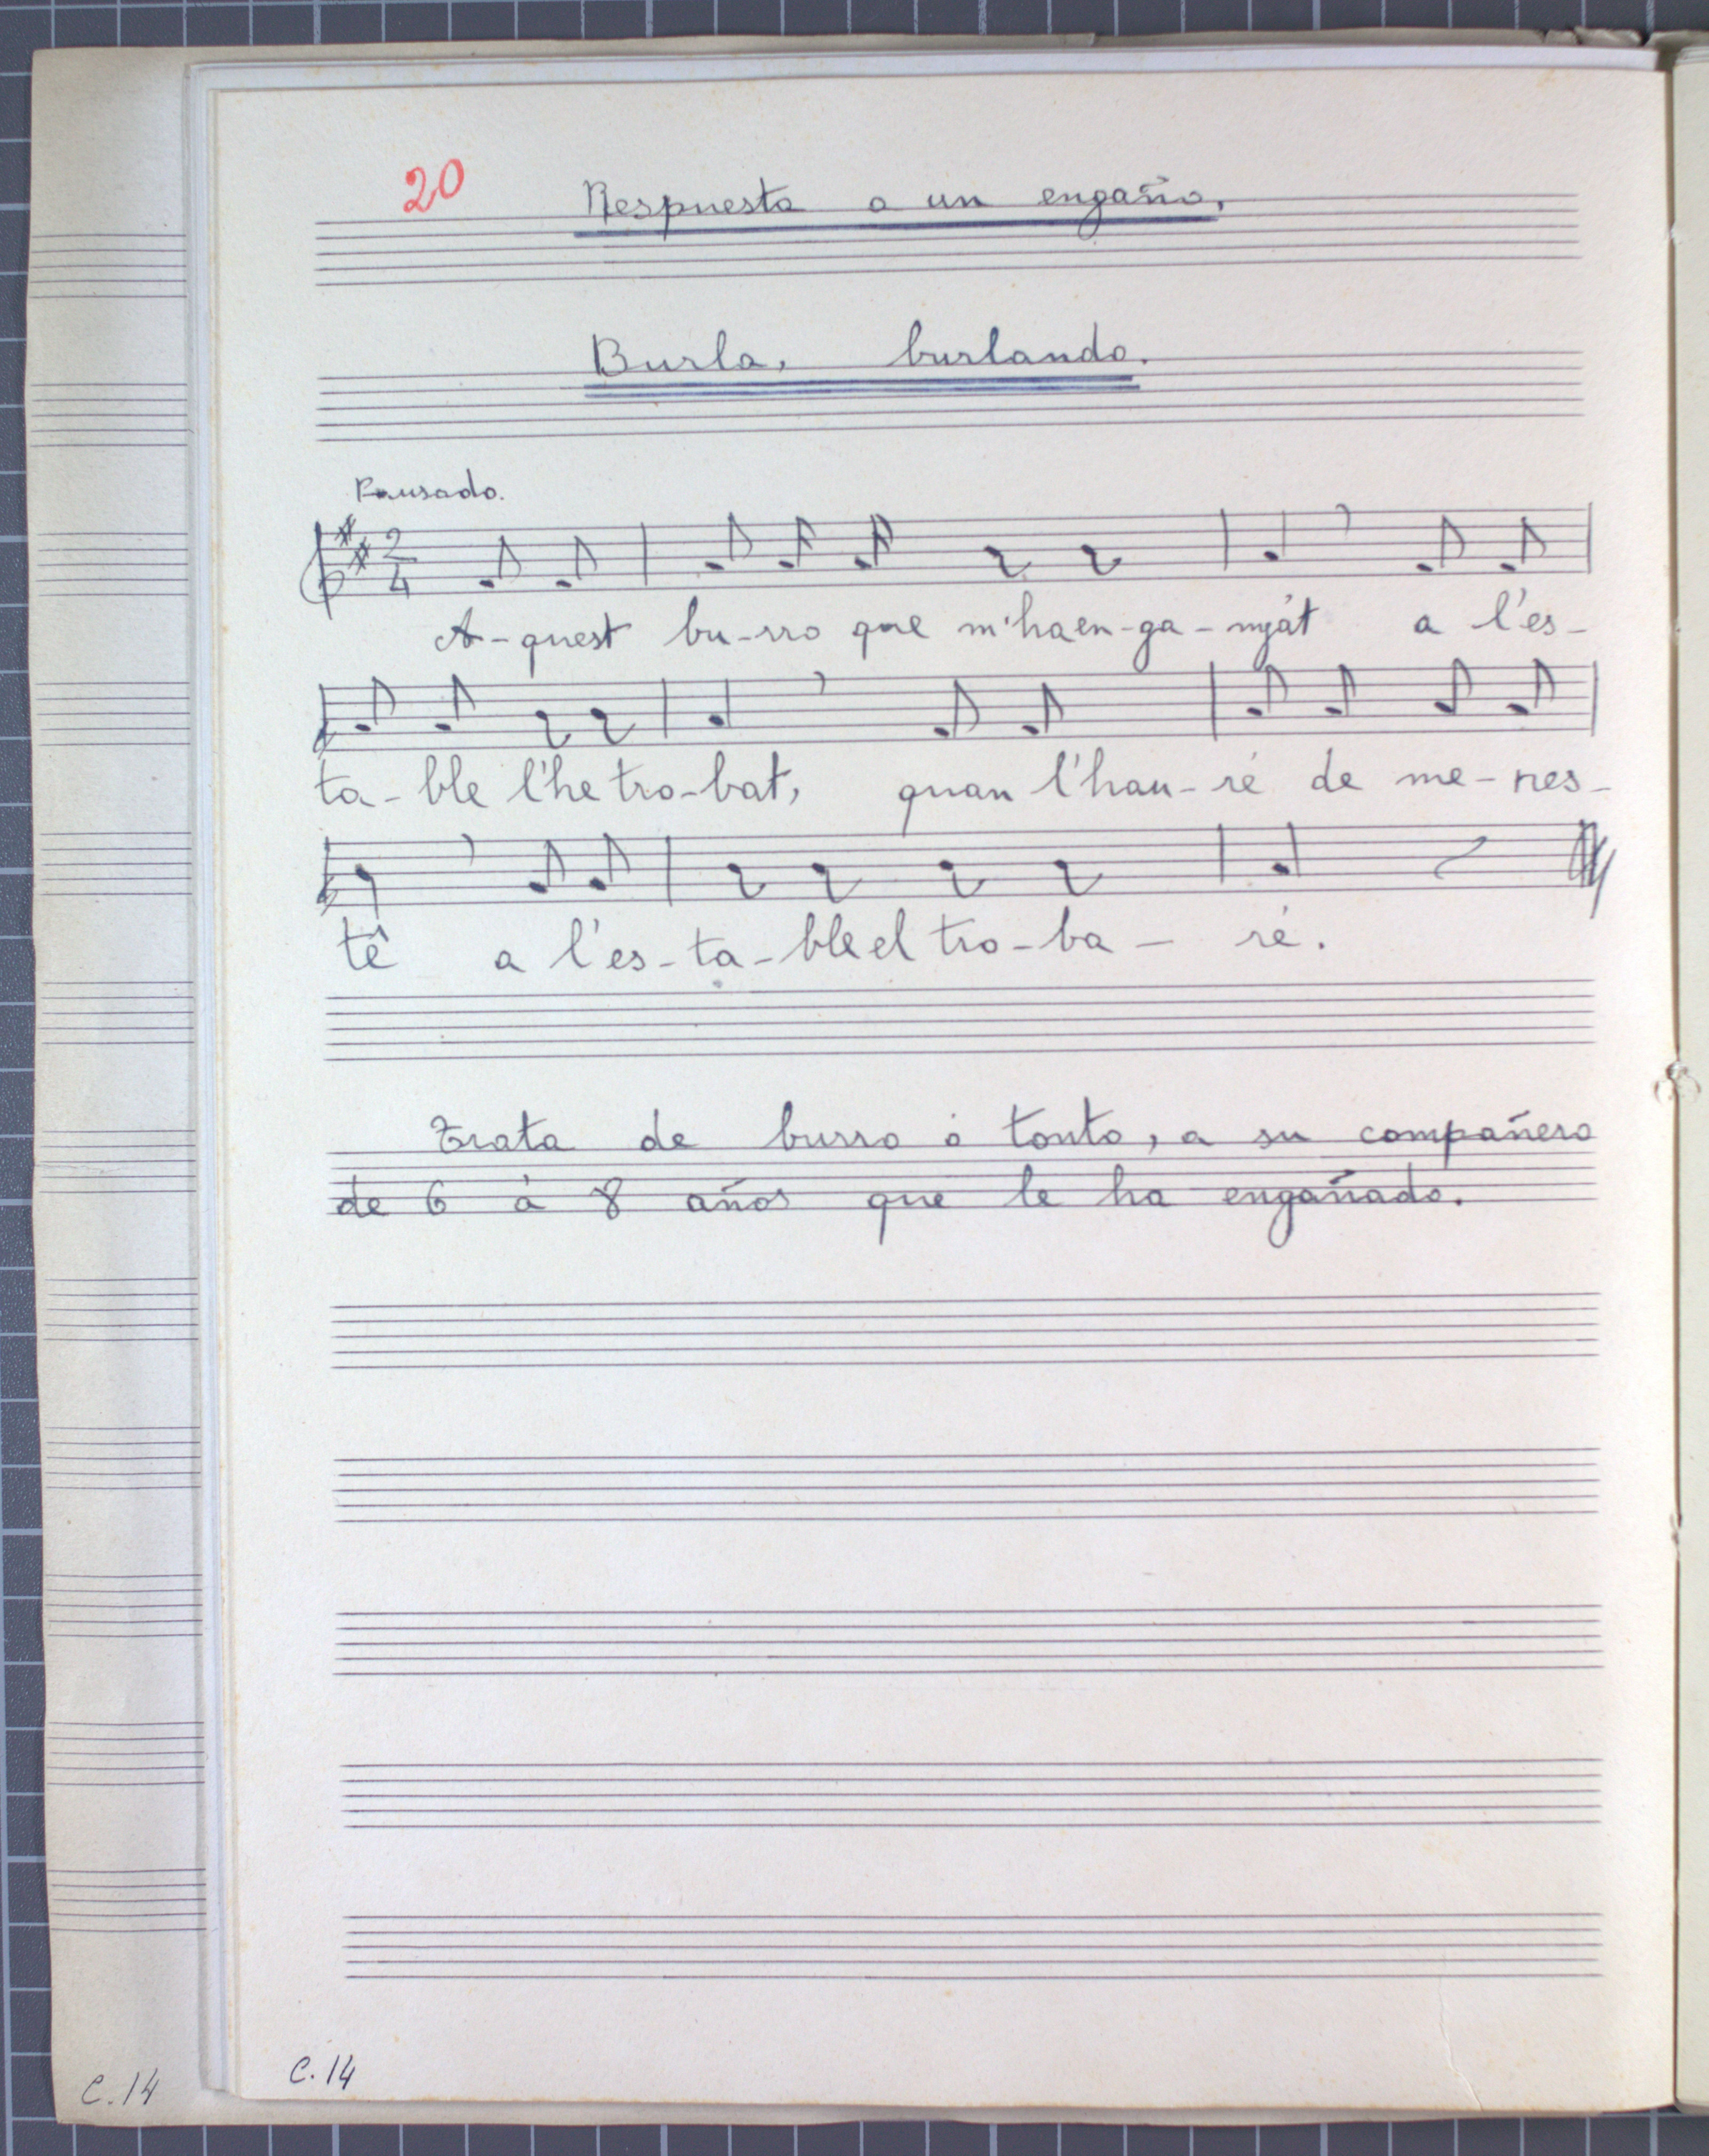 20
Respuesta a un engaño.
Burla, burlando.
Pausado.
2
4
A-quest bu-rro que m'ha en-ga-nyát a l'es-
ta-ble l'he tro-bat, quan l'hau-ré de me-nes-
tê a l'es-ta-ble el tro-ba- ré.
Trata de burro ó tonto, a su compañero
de 6 á 8 años que le ha engañado.
C.14
C.14